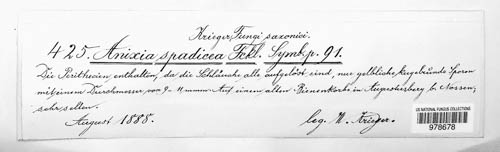 Krieger, Fungi saxonici.
425. Anixia spadicea Fckl. Symb. p. 91.
Die Perithecien enthalten, da die Schläuche alle aufgelöst sind, nur gelbliche kugelrunde Sporen
mit einem Durchmesser von 9-11 mmm. Auf einem alten Bienenkorbe in Augustusberg b. Nossen,
sehr selten.
August 1888. leg. W. Krieger.
US NATIONAL FUNGUS COLLECTIONS
978678